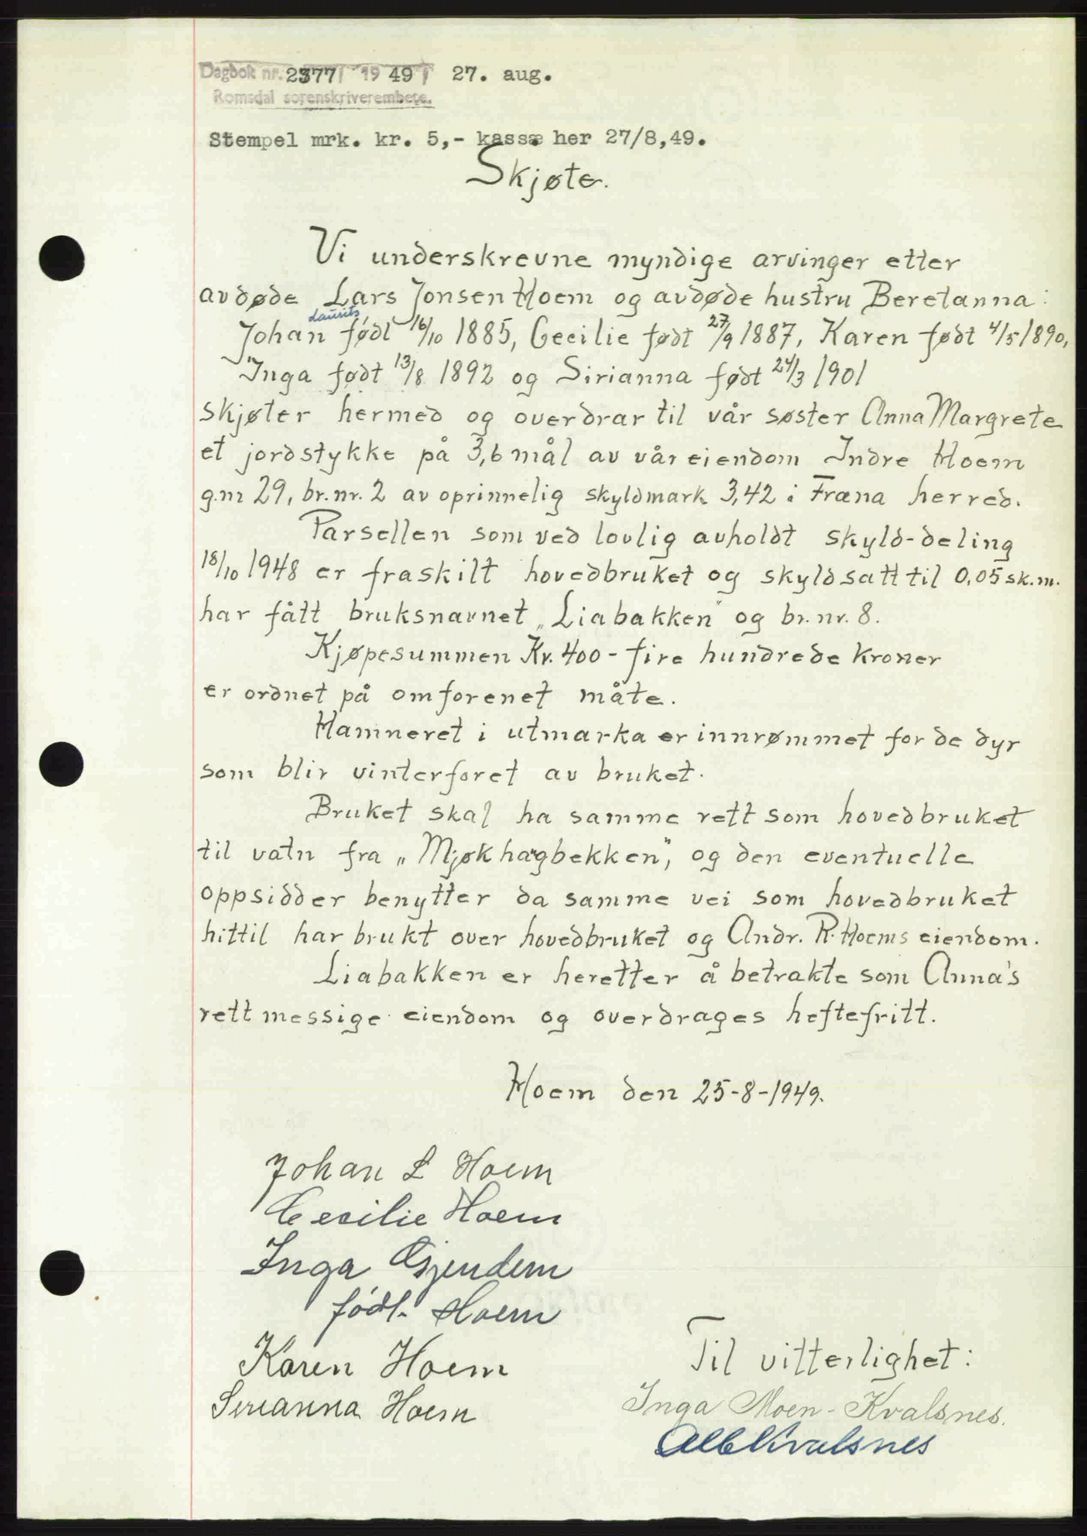 Dagbok nr. 2377 / 1949 27. aug.
Romsdal sorenskriverembete.
Stempel mrk. kr. 5,- kasse her 27/8,49.
Skjøte.
Vi underskrevne myndige arvinger etter
avdøde Lars Jonsen Hoem og avdøde hustru Beretanna:
Laurits
Johan født 16/10 1885, Cecilie født 27/9 1887, Karen født 4/5 1890,
Inga født 13/8 1892 og Sirianna født 24/3 1901
skjøter hermed og overdrar til vår søster Anna Margrete
et jordstykke på 3,6 mål av vår eiendom Indre Hoem
g.nr 29, br.nr. 2 av oprinnelig skyldmark 3,42 i Fræna herred.
Parsellen som ved lovlig avholdt skyld-deling
18/10 1948 er fraskilt hovedbruket og skyldsatt til 0,05 sk.m.
har fått bruksnavnet „Liabakken" og br.nr. 8.
Kjøpesummen Kr. 400 - fire hundrede kroner
er ordnet på omforenet måte.
Hamneret i utmarka er innrømmet for de dyr
som blir vinterforet av bruket.
Bruket skal ha samme rett som hovedbruket
til vatn fra „Mjøkhagbekken", og den eventuelle
oppsidder benytter da samme vei som hovedbruket
hittil har brukt over hovedbruket og Andr. R. Hoems eiendom.
Liabakken er heretter å betrakte som Anna's
rettmessige eiendom og overdrages heftefritt.
Hoem den 25-8-1949.
Johan L Hoem
Cecilie Hoem
Inga Gjendem
født. Hoem
Karen Hoem
Sirianna Hoem
Til vitterlighet:
Inga Moen-Kvalsnes.
Alb Kvalsnes